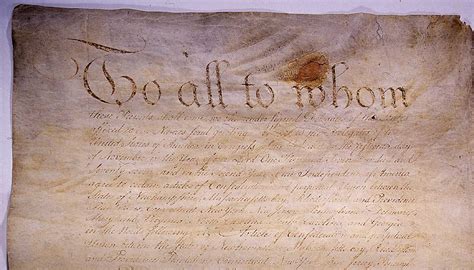 To all to whom
these Presents shall come, we the under signed Delegates of the States
affixed to our Names send greeting. Whereas the Delegates of the
United States of America in Congress assembled did on the fifteenth day
of November in the Year of our Lord One Thousand Seven Hundred and
Seventy seven, and in the Second Year of the Independence of America
agree to certain articles of Confederation and perpetual Union between the
States of Newhampshire, Massachusetts-bay, Rhodeisland and Providence
Connecticut, New York, New Jersey, Pennsylvania, Delaware,
Maryland, Virginia, and Georgia
in the Words following, Articles of Confederation and perpetual
Union between the States of Newhampshire, Massachusetts-bay,
and Providence Plantations, Connecticut, New York, New Jersey,